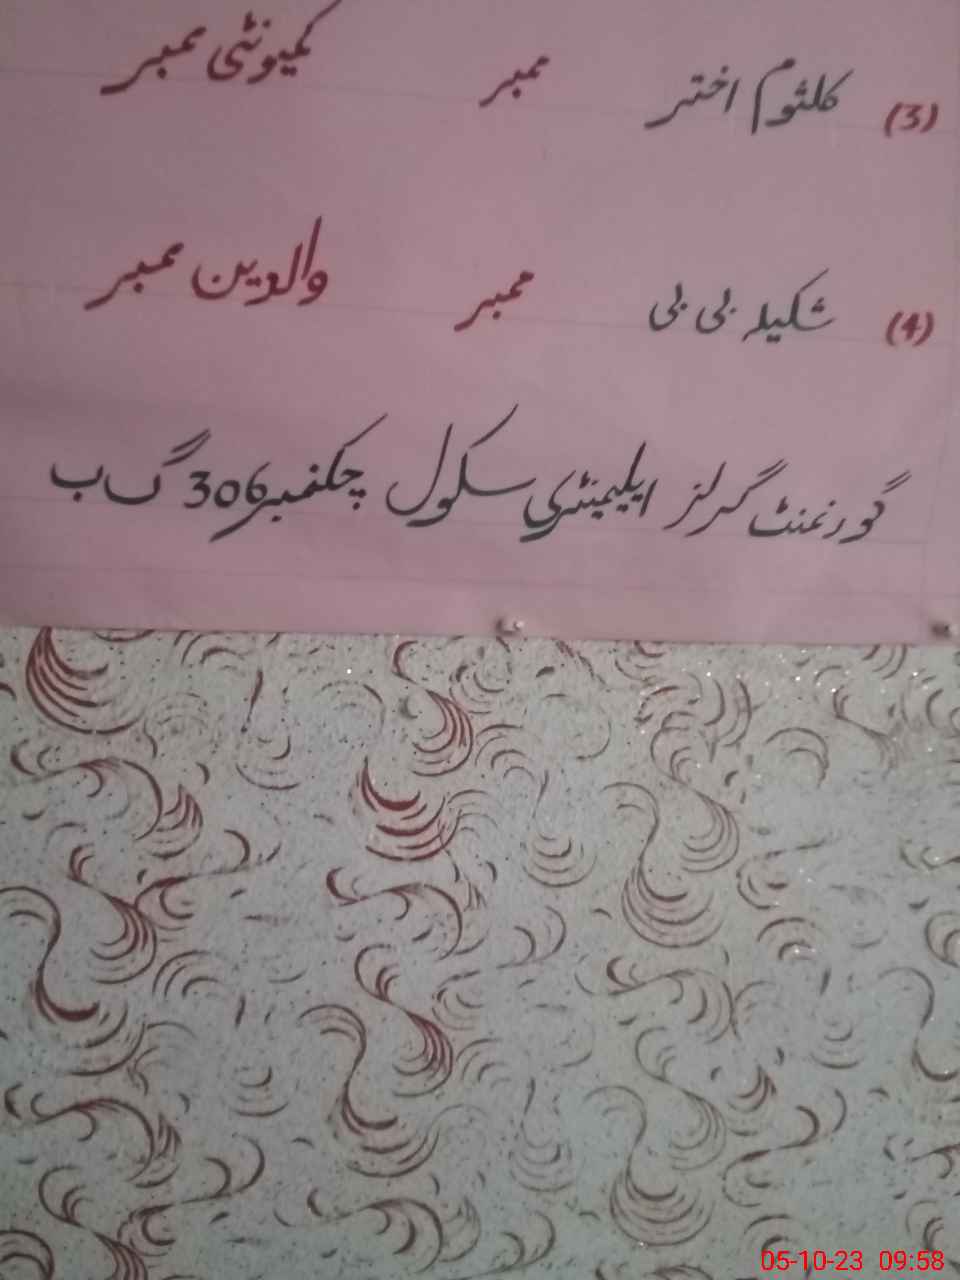 (3) کلثوم اختر ممبر کمیونٹی ممبر
(4) شکیلہ بی بی ممبر والدین ممبر
گورنمنٹ گرلز ایلیمنٹری سکول چکنمبر 306 گ ب
05-10-23 09:58